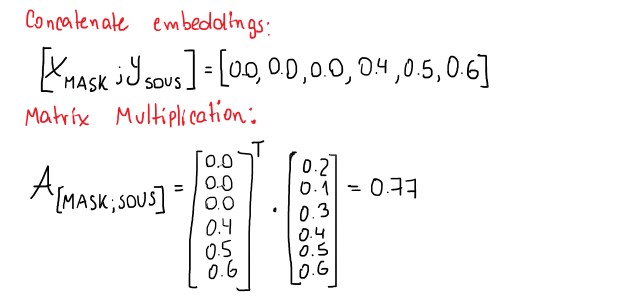 Concatenate embeddings:
[X MASK ; Y SOUS] = [0.0, 0.0, 0.0, 0.4, 0.5, 0.6]
Matrix Multiplication:
A [MASK; SOUS] = [0.0 0.0 0.0 0.4 0.5 0.6] T · [0.2 0.1 0.3 0.4 0.5 0.6] = 0.77